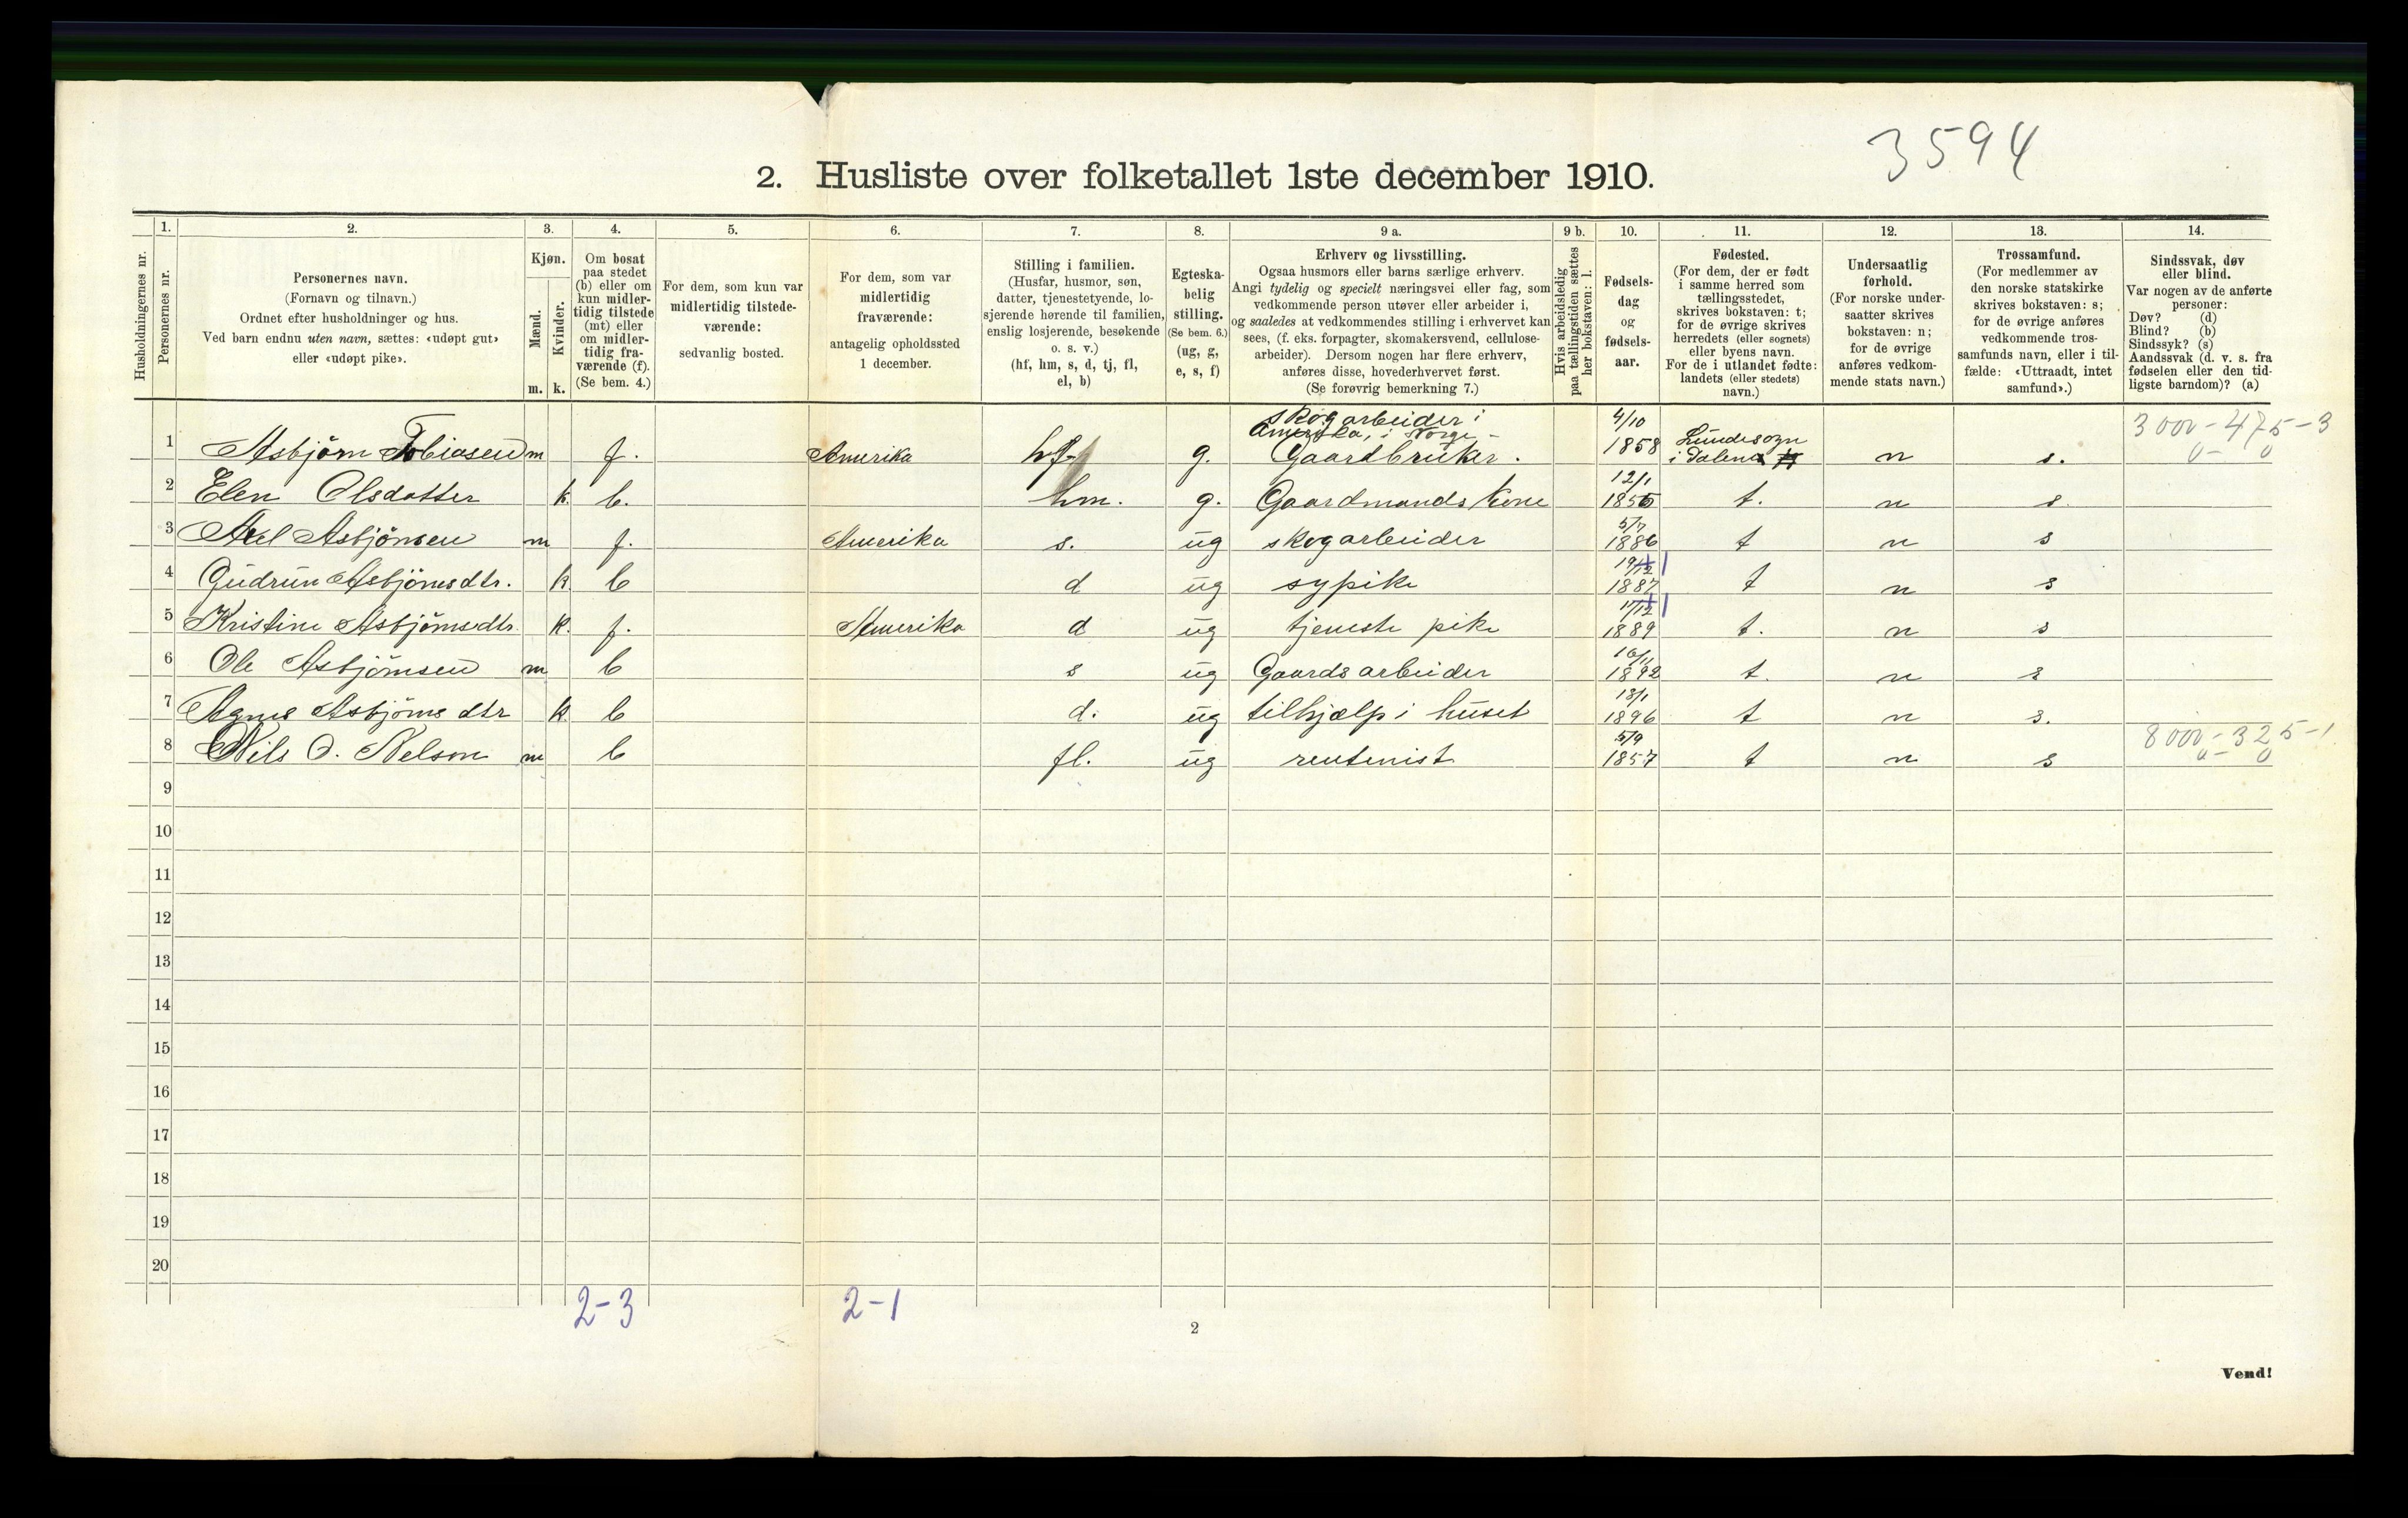 3594
2. Husliste over folketallet 1ste december 1910.
Husholdningernes nr.
1.
Personernes nr.
2.
Personernes navn.
(Fornavn og tilnavn.)
Ordnet efter husholdninger og hus.
Ved barn endnu uten navn, sættes: «udøpt gut»
eller «udøpt pike».
3.
Kjøn.
Mænd.
m.
Kvinder.
k.
4.
Om bosat
paa stedet
(b) eller om
kun midler-
tidig tilstede
(mt) eller
om midler-
tidig fra-
værende (f).
(Se bem. 4.)
5.
For dem, som kun var
midlertidig tilstede-
værende:
sedvanlig bosted.
6.
For dem, som var
midlertidig
fraværende:
antagelig opholdssted
1 december.
7.
Stilling i familien.
(Husfar, husmor, søn,
datter, tjenestetyende, lo-
sjerende hørende til familien,
enslig losjerende, besøkende
o. s. v.)
(hf, hm, s, d, tj, fl,
el, b)
8.
Egteska-
belig
stilling.
(Se bem. 6.)
(ug, g,
e, s, f)
9 a.
Erhverv og livsstilling.
Ogsaa husmors eller barns særlige erhverv.
Angi tydelig og specielt næringsvei eller fag, som
vedkommende person utøver eller arbeider i,
og saaledes at vedkommendes stilling i erhvervet kan
sees, (f. eks. forpagter, skomakersvend, cellulose-
arbeider). Dersom nogen har flere erhverv,
anføres disse, hovederhvervet først.
(Se forøvrig bemerkning 7.)
9 b.
Hvis arbeidsledig
paa tællingstiden sættes
her bokstaven: l.
10.
Fødsels-
dag
og
fødsels-
aar.
11.
Fødested.
(For dem, der er født
i samme herred som
tællingsstedet,
skrives bokstaven: t;
for de øvrige skrives
herredets (eller sognets)
eller byens navn.
For de i utlandet fødte:
landets (eller stedets)
navn.)
12.
Undersaatlig
forhold.
(For norske under-
saatter skrives
bokstaven: n;
for de øvrige
anføres vedkom-
mende stats navn.)
13.
Trossamfund.
(For medlemmer av
den norske statskirke
skrives bokstaven: s;
for de øvrige anføres
vedkommende tros-
samfunds navn, eller i til-
fælde: «Uttraadt, intet
samfund».)
14.
Sindssvak, døv
eller blind.
Var nogen av de anførte
personer:
Døv? (d)
Blind? (b)
Sindssyk? (s)
Aandssvak (d. v. s. fra
fødselen eller den tid-
ligste barndom)? (a)
skogarbeider i 4/10 3000-475-3
Amerika, i Norge - Lundesogn 0- 0
1 Asbjörn Tobiasen m f. Amerika hf g. Gaardbruker. 1858 i Dalene n s.
12/1
2 Elen Olsdatter k. b. hm. g. Gaardmands kone t. n s.
5/7
3 Axel Asbjörnsen m f. Amerika s. ug skogarbeider 1886 t n s
4 Gudrun Asbjörnsdtr. k. b d ug sypike 1887 t n s
5 Kristine Asbjörnsdtr. k. f. Amerika d ug tjeneste pike 1889 t. n s
16/11
6 Ole Asbjörnsen m b s ug Gaardsarbeider 1892 t. n s
7 Agnes Asbjörnsdtr k b d. ug tilhjælp i huset 1896 t n s.
5/9 8000-325-1
8 Nils O. Nelson m b fl. ug rentenist 1857 t n s 0- 0
9
10
11
12
13
14
15
16
17
18
19
20
2-3 2-1
2
Vend!